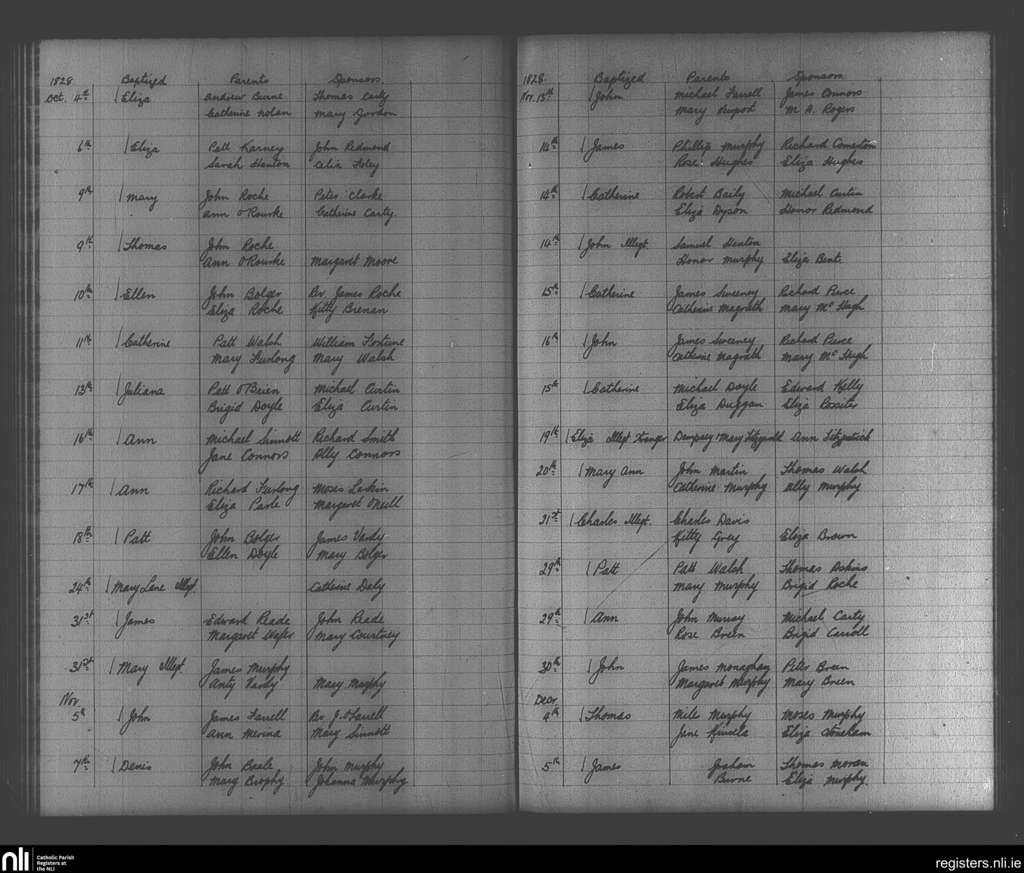 1828 Baptized Parents Sponsors
Oct. 4th Eliza Andrew Burne Thomas Carty
Catherine Nolan Mary Gordon
6th Eliza Patt Karney John Redmond
Sarah Stanton Celia Foley
9th Mary John Roche Peter Clarke
Ann O'Rourke Catherine Carty
9th Thomas John Roche
Ann O'Rourke Margaret Moore
10th Ellen John Bolger Rv. James Roche
Eliza Roche Kitty Brenan
11th Catherine Patt Walsh William Fortune
Mary Furlong Mary Walsh
13th Juliana Patt O'Brien Michael Curtin
Brigid Doyle Eliza Curtin
16th Ann Michael Sinnott Richard Smith
Jane Connors Ally Connors
17th Ann Richard Furlong Moses Larkin
Eliza Parle Margaret O'Neill
18th Patt John Bolger James Vardy
Ellen Doyle Mary Bolger
24th Mary Lane Illegt. Catherine Daly
31st James Edward Reade John Reade
Margaret Wafer Mary Courtney
31st Mary Illegt James Murphy
Anty Vardy Mary Murphy
Nov
5th John James Farrell Rv. J. O'Farrell
Ann Merina Mary Sinnott
7th Denis John Basle John Murphy
Mary Brophy Johanna Murphy
1828. Baptized Parents Sponsors
Nov. 13th John Michael Farrell James Connors
Mary M. A. Rogers
14th James Phillip Murphy Richard Comerton
Rose Hughes Eliza Hughes
14th Catherine Robert Baily Michael Curtin
Eliza Dyson Honor Redmond
14th John Illegt. Samuel Stanton
Honor Murphy Eliza Bent
15th Catherine James Sweeney Richard Pierce
Catherine Magrath Mary McHugh
16th John James Sweeney Richard Pierce
Catherine Magrath Mary McHugh
15th Catherine Michael Doyle Edward Kelly
Eliza Duggan Eliza Rossiter
19th Eliza Illegt Stranger Dempsey & Mary Fitzgerald Ann Fitzpatrick
20th Mary Ann John Martin Thomas Walsh
Catherine Murphy Ally Murphy
21st Charles Illegt. Charles Davis
Kitty Grey Eliza Brown
29th Patt Patt Walsh Thomas Askins
Mary Murphy Brigid Roche
29th Ann John Murray Michael Carty
Rose Breen Brigid Carroll
30th John James Monaghan Peter Breen
Margaret Murphy Mary Breen
Decr
4th Thomas Mile Murphy Moses Murphy
Jane Kinsela Eliza
5th James Graham Thomas Moran
Burne Eliza Murphy
nli Catholic Parish
Registers at
the NLI
registers.nli.ie